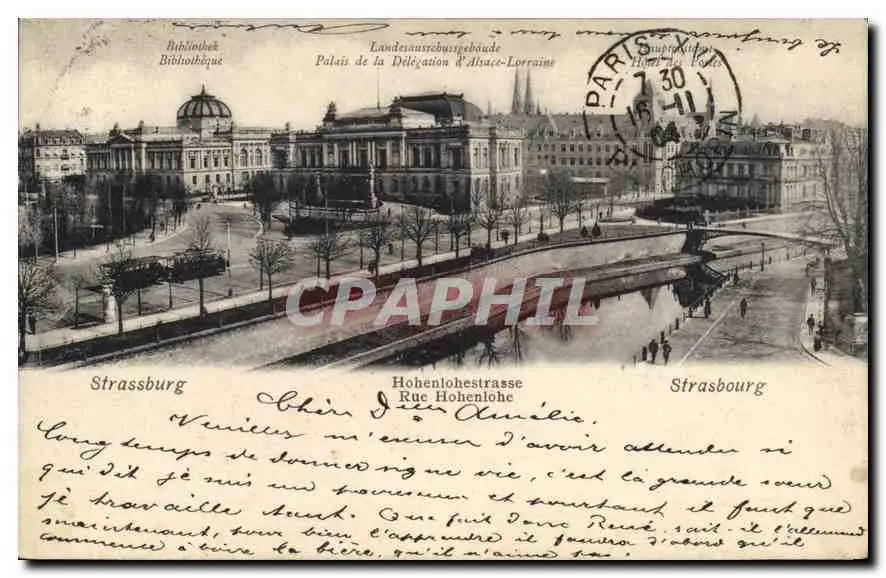 Bibliothek
Bibliothèque
Landesausschussgebäude
Palais de la Délégation d'Alsace-Lorraine
Hauptpostamt
Hôtel des Postes
PARIS
7 30
16 11
04
CPAPHIL
Strassburg
Hohenlohestrasse
Rue Hohenlohe
Strasbourg
Chère Amélie.
Veuillez m'excuser d'avoir attendu si
longtemps de donner signe vie, c'est la grande sœur
qui dit je suis un paresseux et pourtant il faut que
je travaille tant. Que fait donc René, sait-il l'allemand
maintenant, pour bien l'apprendre il faudra d'abord qu'il
commence à boire la bière, qu'il n'aime pas.